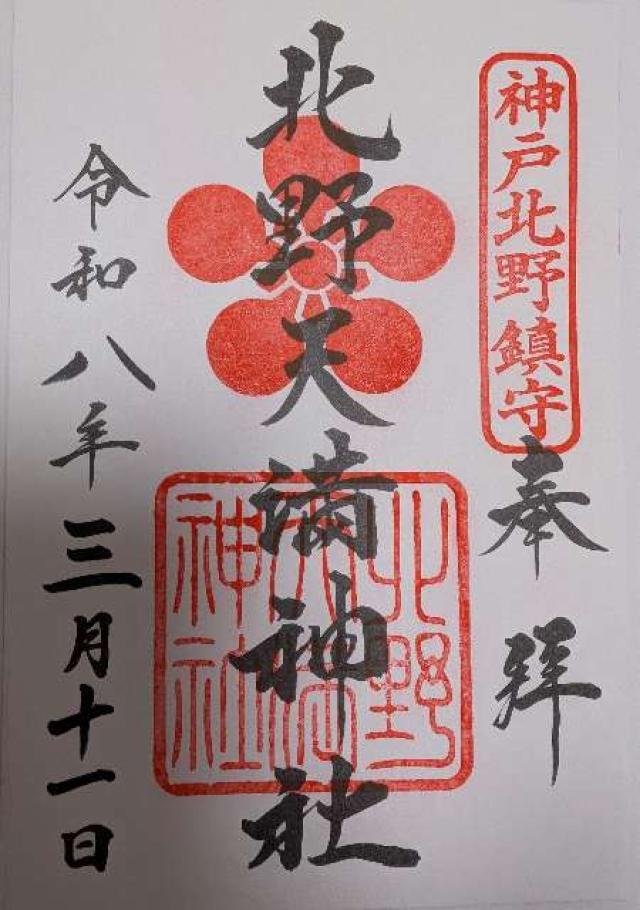 神戸北野鎮守
奉拝
北野天満神社
北野天満神社
令和八年三月十一日